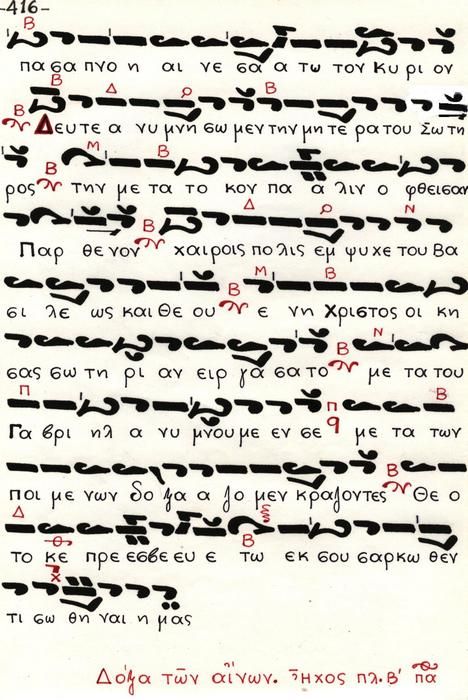 -416-
πα σα πνο η αι νε σα α τω τον Κυ ρι ον
Δευτε α νυ μνη σω μεν την μη τε ρα του Σω τη
ρος την με τα το κον πα α λιν ο φθεισαν
Παρ θε νον χαιροις πο λις εμ ψυ χε του Βα
σι λε ως και Θε ου ε νη Χριστος οι κη
σας σω τη ρι αν ειρ γα σα το με τα του
Γα βρι ηλ α νυ μνου με εν σε με τα των
ποι με νων δο ξα α ζο μεν κραζοντες Θε ο
το κε πρε εσβε ευ ε τω εκ σου σαρκω θεν
τι σω θη ναι η μας
Δόξα τῶν αἴνων. Ἦχος πλ. Β΄ πα